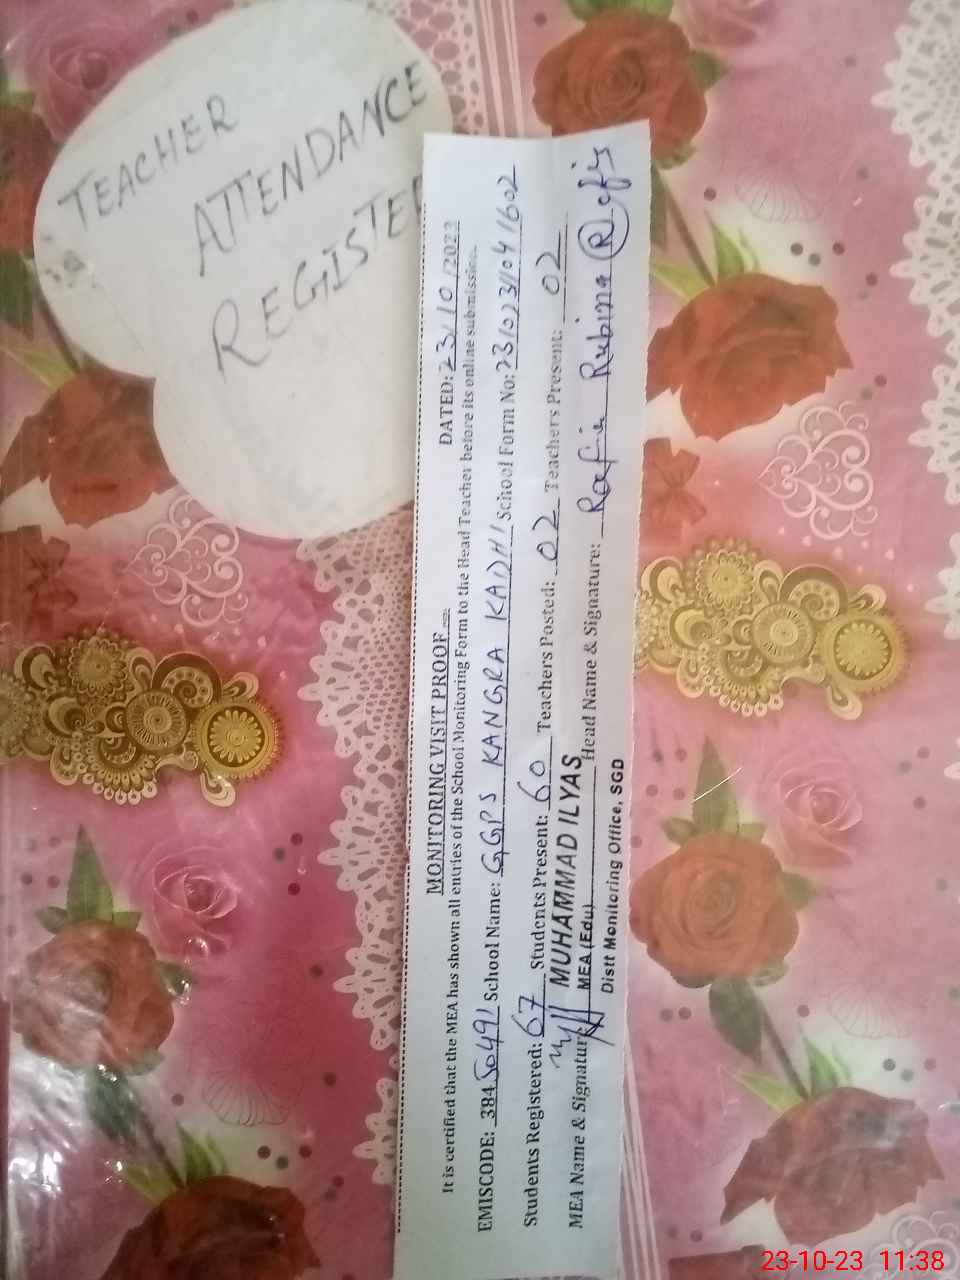 TEACHER
ATTENDANCE
REGISTER
MONITORING VISIT PROOF DATED: 23/10/2023
It is certified that the MEA has shown all entries of the School Monitoring Form to the Head Teacher before its online submission.
EMISCODE: 38450491 School Name: GGPS KANGRA KADHI School Form No:
Students Registered: 67 Students Present: 60 Teachers Posted: 02 Teachers Present: 02
MEA Name & Signature: MUHAMMAD ILYAS Head Name & Signature: Rubina
MEA (Edu)
Distt Monitoring Office, SGD
23-10-23 11:38